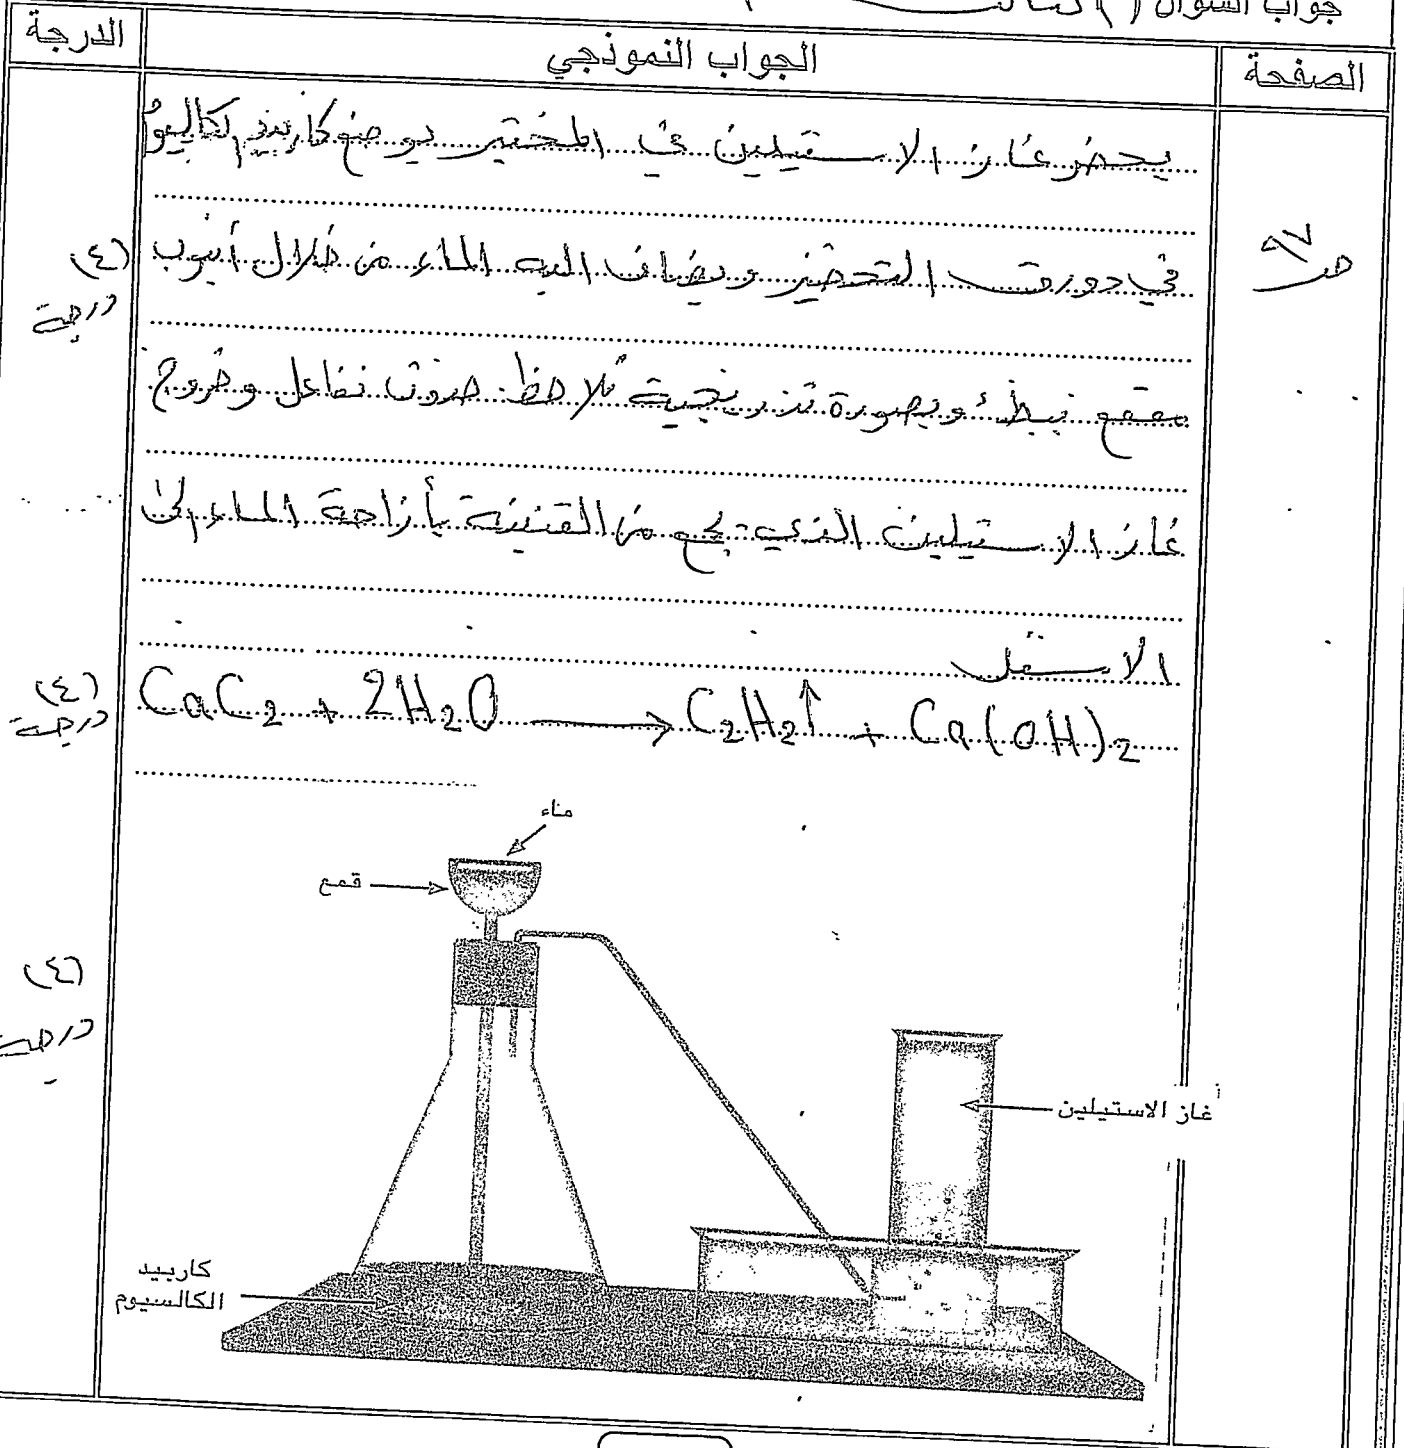 جواب السؤال ( الثالث
الصفحة
الجواب النموذجي
الدرجة
يحضر غاز الاستيلين في المختبر بوضع كاربيد الكالسيوم
في دورق التحضير ويضاف اليه الماء من خلال أنبوب
مقمع ببطئ وبصورة تدريجية نلاحظ حدوث تفاعل وخروج
غاز الاستيلين الذي يجمع من القنينة بأزاحة الماء إلى
الاسفل
ص٩٧
(٤)
درجة
CaC₂ + 2H₂O ⟶ C₂H₂↑ + Ca(OH)₂
(٤)
درجة
ماء
قمع
(٤)
درجة
غاز الاستيلين
كاربيد
الكالسيوم